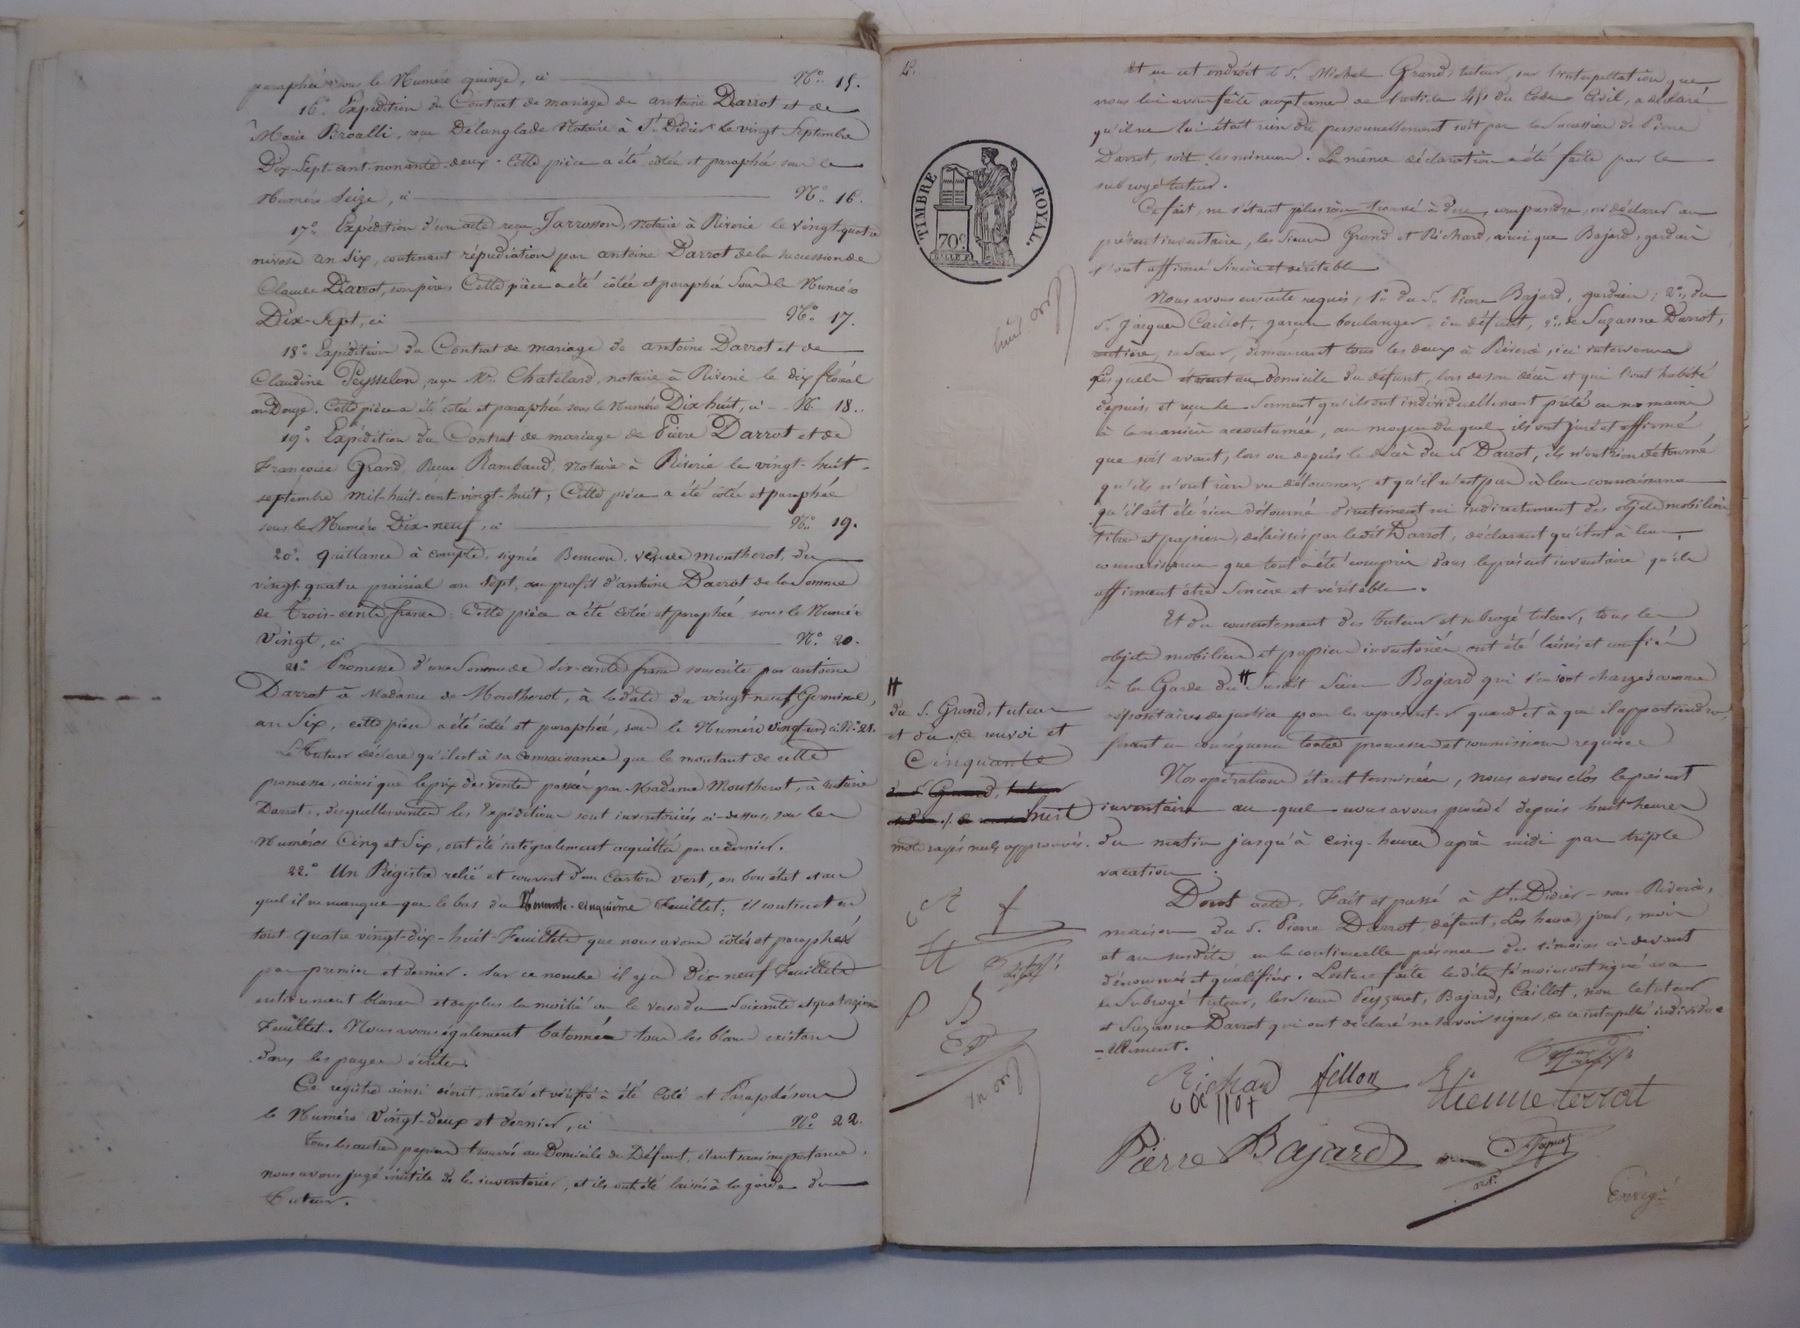 paraphée sous le Numéro quinze, ci N° 15.
16° Expédition du Contrat de mariage de antoine Darrot et de
Marie Broalli, reçu Delanglade Notaire à St Didier le vingt Septembre
Dix-Sept-cent-nonante-deux. Cette pièce a été cotée et paraphée sous le
Numéro Seize, ci N° 16.
17° Expédition d'un acte reçu Jarrosson, Notaire à Riverie le vingt quatre
nivose an Six, contenant répudiation par antoine Darrot de la succession de
Claude Darrot, son père. Cette pièce a été cotée et paraphée Sous le Numéro
Dix-Sept, ci N° 17.
18° Expédition du Contrat de mariage de antoine Darrot et de
Claudine Peysselon, reçu Me Chatelard, notaire à Riverie le dix floréal
an Douze. Cette pièce a été cotée et paraphée sous le Numéro Dix-huit, ci N° 18.
19° Expédition du Contrat de mariage de Pierre Darrot et de
Françoise Grand, Reçu Rambaud, Notaire à Riverie le vingt-huit
septembre mil-huit-cent-vingt-huit; Cette pièce a été cotée et paraphée
sous le Numéro Dix-neuf, ci N° 19.
20° Quittance à compte, signée veuve Montherot, du
vingt-quatre prairial an Sept, au profit d'antoine Darrot de la Somme
de Trois-cents francs. Cette pièce a été cotée et paraphée sous le Numéro
Vingt, ci N° 20.
21° Promesse d'une Somme de six-cents francs souscrite par antoine
Darrot à Madame de Montherot, à la date du vingt neuf Germinal,
an Six, cette pièce a été cotée et paraphée, sous le Numéro vingt-un, ci N° 21.
Le Tuteur déclare qu'il est à sa connaissance que le montant de cette
promesse, ainsi que le prix des ventes passées par Madame Montherot, à antoine
Darrot, desquelles ventes les Expéditions sont inventoriées ci-dessus, sous les
Numéros Cinq et Six, ont été intégralement acquittés par ce dernier.
22° Un Régistre relié et couvert d'un Carton vert, en bon état et au
quel il ne manque que le bas du Nonante-cinquième Feuillet; il contient en
tout quatre vingt-dix-huit Feuillets que nous avons cotés et paraphés
par premier et dernier. Sur ce nombre il y a Dix-neuf Feuillets
entièrement blancs et de plus la moitié ou le verso du Soixante et quatorzième
Feuillet. Nous avons également batonné tous les blancs existans
dans les pages écrites.
Ce registre ainsi décrit, arrêté et vérifié à été Coté et Paraphé sous
le Numéro Vingt-deux et dernier, ci N° 22.
Tous les autres papiers trouvés au Domicile du Défunt, étant sans importance,
nous avons jugé inutile de les inventorier, et ils ont été laissés à la garde du
Tuteur.
TIMBRE ROYAL.
70c
Et en cet endroit le S. Michel Grand, tuteur, sur l'interpellation que
nous lui avons faite aux termes de l'article 451 du Code Civil, a déclaré
qu'il ne lui était rien dû personnellement soit par la Succession de Pierre
Darrot, soit les mineurs. La même déclaration a été faite par le
subrogé tuteur.
Ce fait, ne s'étant plus rien trouvé à dire, comprendre, ni déclarer au
présent inventaire, les Sieurs Grand et Richard, ainsi que Bajard, gardien
l'ont affirmé Sincère et véritable
Nous avons ensuite requis, 1° du S. Pierre Bajard, gardien; 2° du
S. Jacques Caillot, garçon boulanger du défunt, de Suzanne Darrot,
sa Sœur, demeurant tous les deux à Riverie, ici intervenus
Lesquels étaient au domicile du défunt, lors de son décès et qui l'ont habité
depuis, et reçu le Serment qu'ils ont individuellement prêté en nos mains
à la manière accoutumée, au moyen duquel ils ont juré et affirmé
que soit avant, lors ou depuis le décès du S. Darrot, ils n'ont rien détourné
qu'ils n'ont rien vu détourner, et qu'il n'est pas à leur connaissance
qu'il ait été rien détourné directement ni indirectement des objets mobiliers,
titres et papiers, délaissés par ledit Darrot, déclarant qu'il est à leur
connaissance que tout a été compris dans le présent inventaire qu'ils
affirment être Sincère et véritable.
Et du consentement des Tuteur et subrogé tuteur, tous les
objets mobiliers et papiers inventoriés ont été laissés et confiés
à la Garde du # Susdit Sieur Bajard qui s'en sont chargés comme
dépositaires de justice pour les représenter quand et à qui il appartiendra,
faisant en conséquence toutes promesses et soumissions requises
Nos opérations étant terminées, nous avons clos le présent
inventaire au quel nous avons procédé depuis huit heures
du matin jusqu'à cinq heures après midi par triple
vacation.
Dont acte. Fait et passé à St Didier-sous Riverie,
maison du S. Pierre Darrot, défunt, Les heure, jour, mois
et an susdits en la continuelle présence des témoins ci-devant
dénommés et qualifiés. Lecture faite lesdits témoins ont signé avec
le Subrogé tuteur, les Sieurs Peyzaret, Bajard, Caillot, non le tuteur
et Suzanne Darrot qui ont déclaré ne savoir signer, de ce interpellés individuel
-ellement.
#
du S. Grand, tuteur
et du renvoi et
Cinquante
huit
mots rayés nuls approuvés.
Richard fellon Etienne terrot
Caillot
Pierre Bajard
not.
Enregé